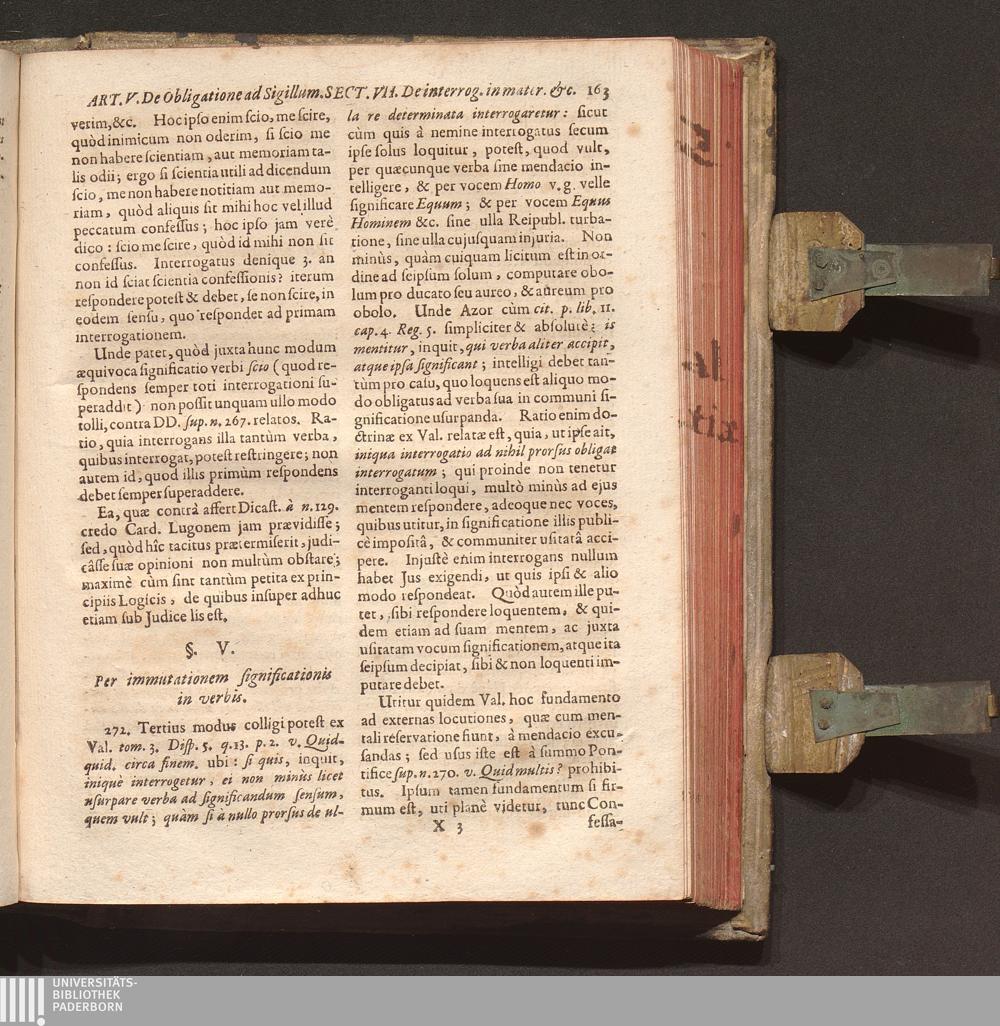 ART. V. De Obligatione ad Sigillum. SECT. VII. De interrog. in mater. &c. 163
verim, &c. Hoc ipso enim scio, me scire,
quòd inimicum non oderim, si scio me
non habere scientiam, aut memoriam ta-
lis odii; ergo si scientia utili ad dicendum
scio, me non habere notitiam aut memo-
riam, quòd aliquis sit mihi hoc vel illud
peccatum confessus; hoc ipso jam verè
dico: scio me scire, quòd id mihi non sit
confessus. Interrogatus denique 3. an
non id sciat scientia confessionis? iterum
respondere potest & debet, se non scire, in
eodem sensu, quo respondet ad primam
interrogationem.
Unde patet, quòd juxta hunc modum
æquivoca significatio verbi scio (quod re-
spondens semper toti interrogationi su-
peraddit) non possit unquam ullo modo
tolli, contra DD. sup. n. 267. relatos. Ra-
tio, quia interrogans illa tantùm verba,
quibus interrogat, potest restringere; non
autem id, quod illis primùm respondens
debet semper superaddere.
Ea, quæ contrà affert Dicast. à n. 129.
credo Card. Lugonem jam prævidisse;
sed, quòd hîc tacitus prætermiserit, judi-
câsse suæ opinioni non multùm obstare;
maximè cùm sint tantùm petita ex prin-
cipiis Logicis, de quibus insuper adhuc
etiam sub Judice lis est.
§. V.
Per immutationem significationis
in verbis.
272. Tertius modus colligi potest ex
Val. tom. 3. Disp. 5. q. 13. p. 2. v. Quid-
quid. circa finem. ubi: si quis, inquit,
iniquè interrogetur, ei non minùs licet
usurpare verba ad significandum sensum,
quem vult; quàm si à nullo prorsus de ul-
la re determinata interrogaretur: sicut
cùm quis à nemine interrogatus secum
ipse solus loquitur, potest, quod vult,
per quæcunque verba sine mendacio in-
telligere, & per vocem Homo v. g. velle
significare Equum; & per vocem Equus
Hominem &c. sine ulla Reipubl. turba-
tione, sine ulla cujusquam injuria. Non
minùs, quàm cuiquam licitum est in or-
dine ad seipsum solum, computare obo-
lum pro ducato seu aureo, & aureum pro
obolo. Unde Azor cùm cit. p. lib. 11.
cap. 4. Reg. 5. simpliciter & absolutè: is
mentitur, inquit, qui verba aliter accipit,
atque ipsa significant; intelligi debet tan-
tùm pro casu, quo loquens est aliquo mo-
do obligatus ad verba sua in communi si-
gnificatione usurpanda. Ratio enim do-
ctrinæ ex Val. relatæ est, quia, ut ipse ait,
iniqua interrogatio ad nihil prorsus obligat
interrogatum; qui proinde non tenetur
interroganti loqui, multò minùs ad ejus
mentem respondere, adeoque nec voces,
quibus utitur, in significatione illis publi-
cè impositâ, & communiter usitatâ acci-
pere. Injustè enim interrogans nullum
habet Jus exigendi, ut quis ipsi & alio
modo respondeat. Quòd autem ille pu-
tet, sibi respondere loquentem, & qui-
dem etiam ad suam mentem, ac juxta
usitatam vocum significationem, atque ita
seipsum decipiat, sibi & non loquenti im-
putare debet.
Utitur quidem Val. hoc fundamento
ad externas locutiones, quæ cum men-
tali reservatione fiunt, à mendacio excu-
sandas; sed usus iste est à summo Pon-
tifice sup. n. 270. v. Quid multis? prohibi-
tus. Ipsum tamen fundamentum si fir-
mum est, uti planè videtur, tunc Con-
X 3 fessa-
UNIVERSITÄTS-
BIBLIOTHEK
PADERBORN